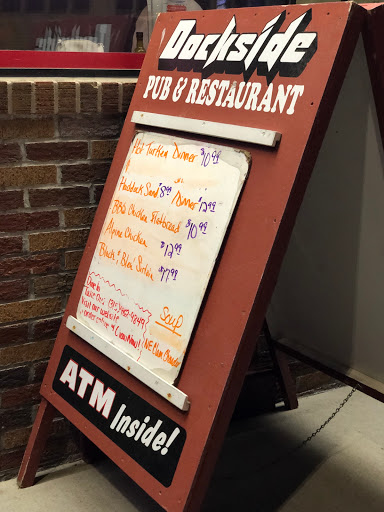 Dockside
PUB & RESTAURANT
Hot Turkey Dinner $10.99
Haddock Sand $8.99 or Dinner $12.99
BBQ Chicken Flatbread $10.99
Alpine Chicken $12.99
Black & Bleu Sirloin
Dine In
Take Out
Visit our website
Soup
NE Clam Chowder
ATM
Inside!